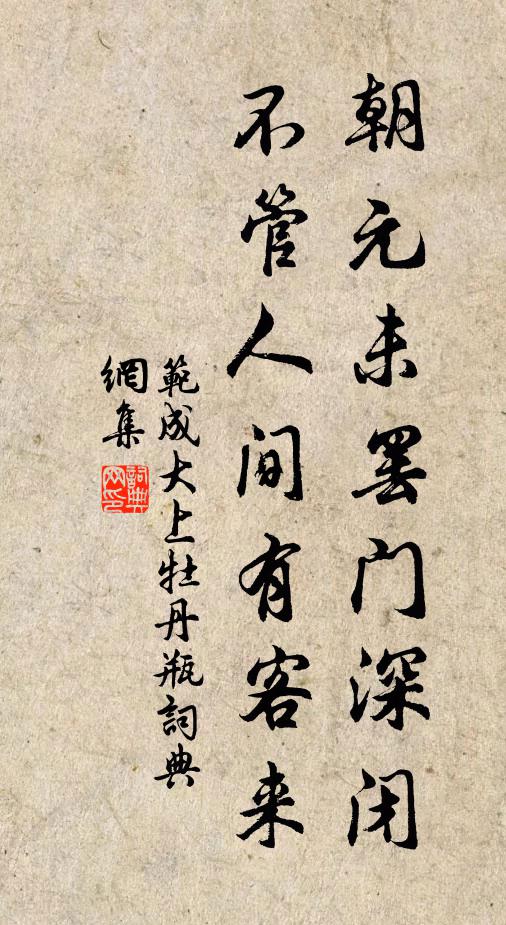 朝元未罢门深闭
不管人间有客来
範成大上牡丹瓶詞典
網集
詞典
网印